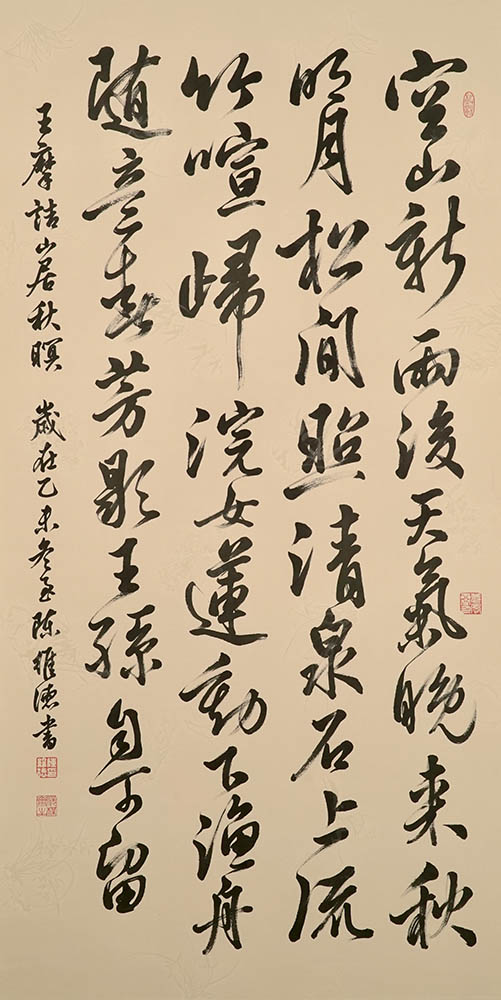 空山新雨後天氣晚來秋
明月松間照清泉石上流
竹喧歸浣女蓮動下漁舟
随意春芳歇王孫自可留
王摩詰山居秋暝 歲在乙未冬至陳維德書